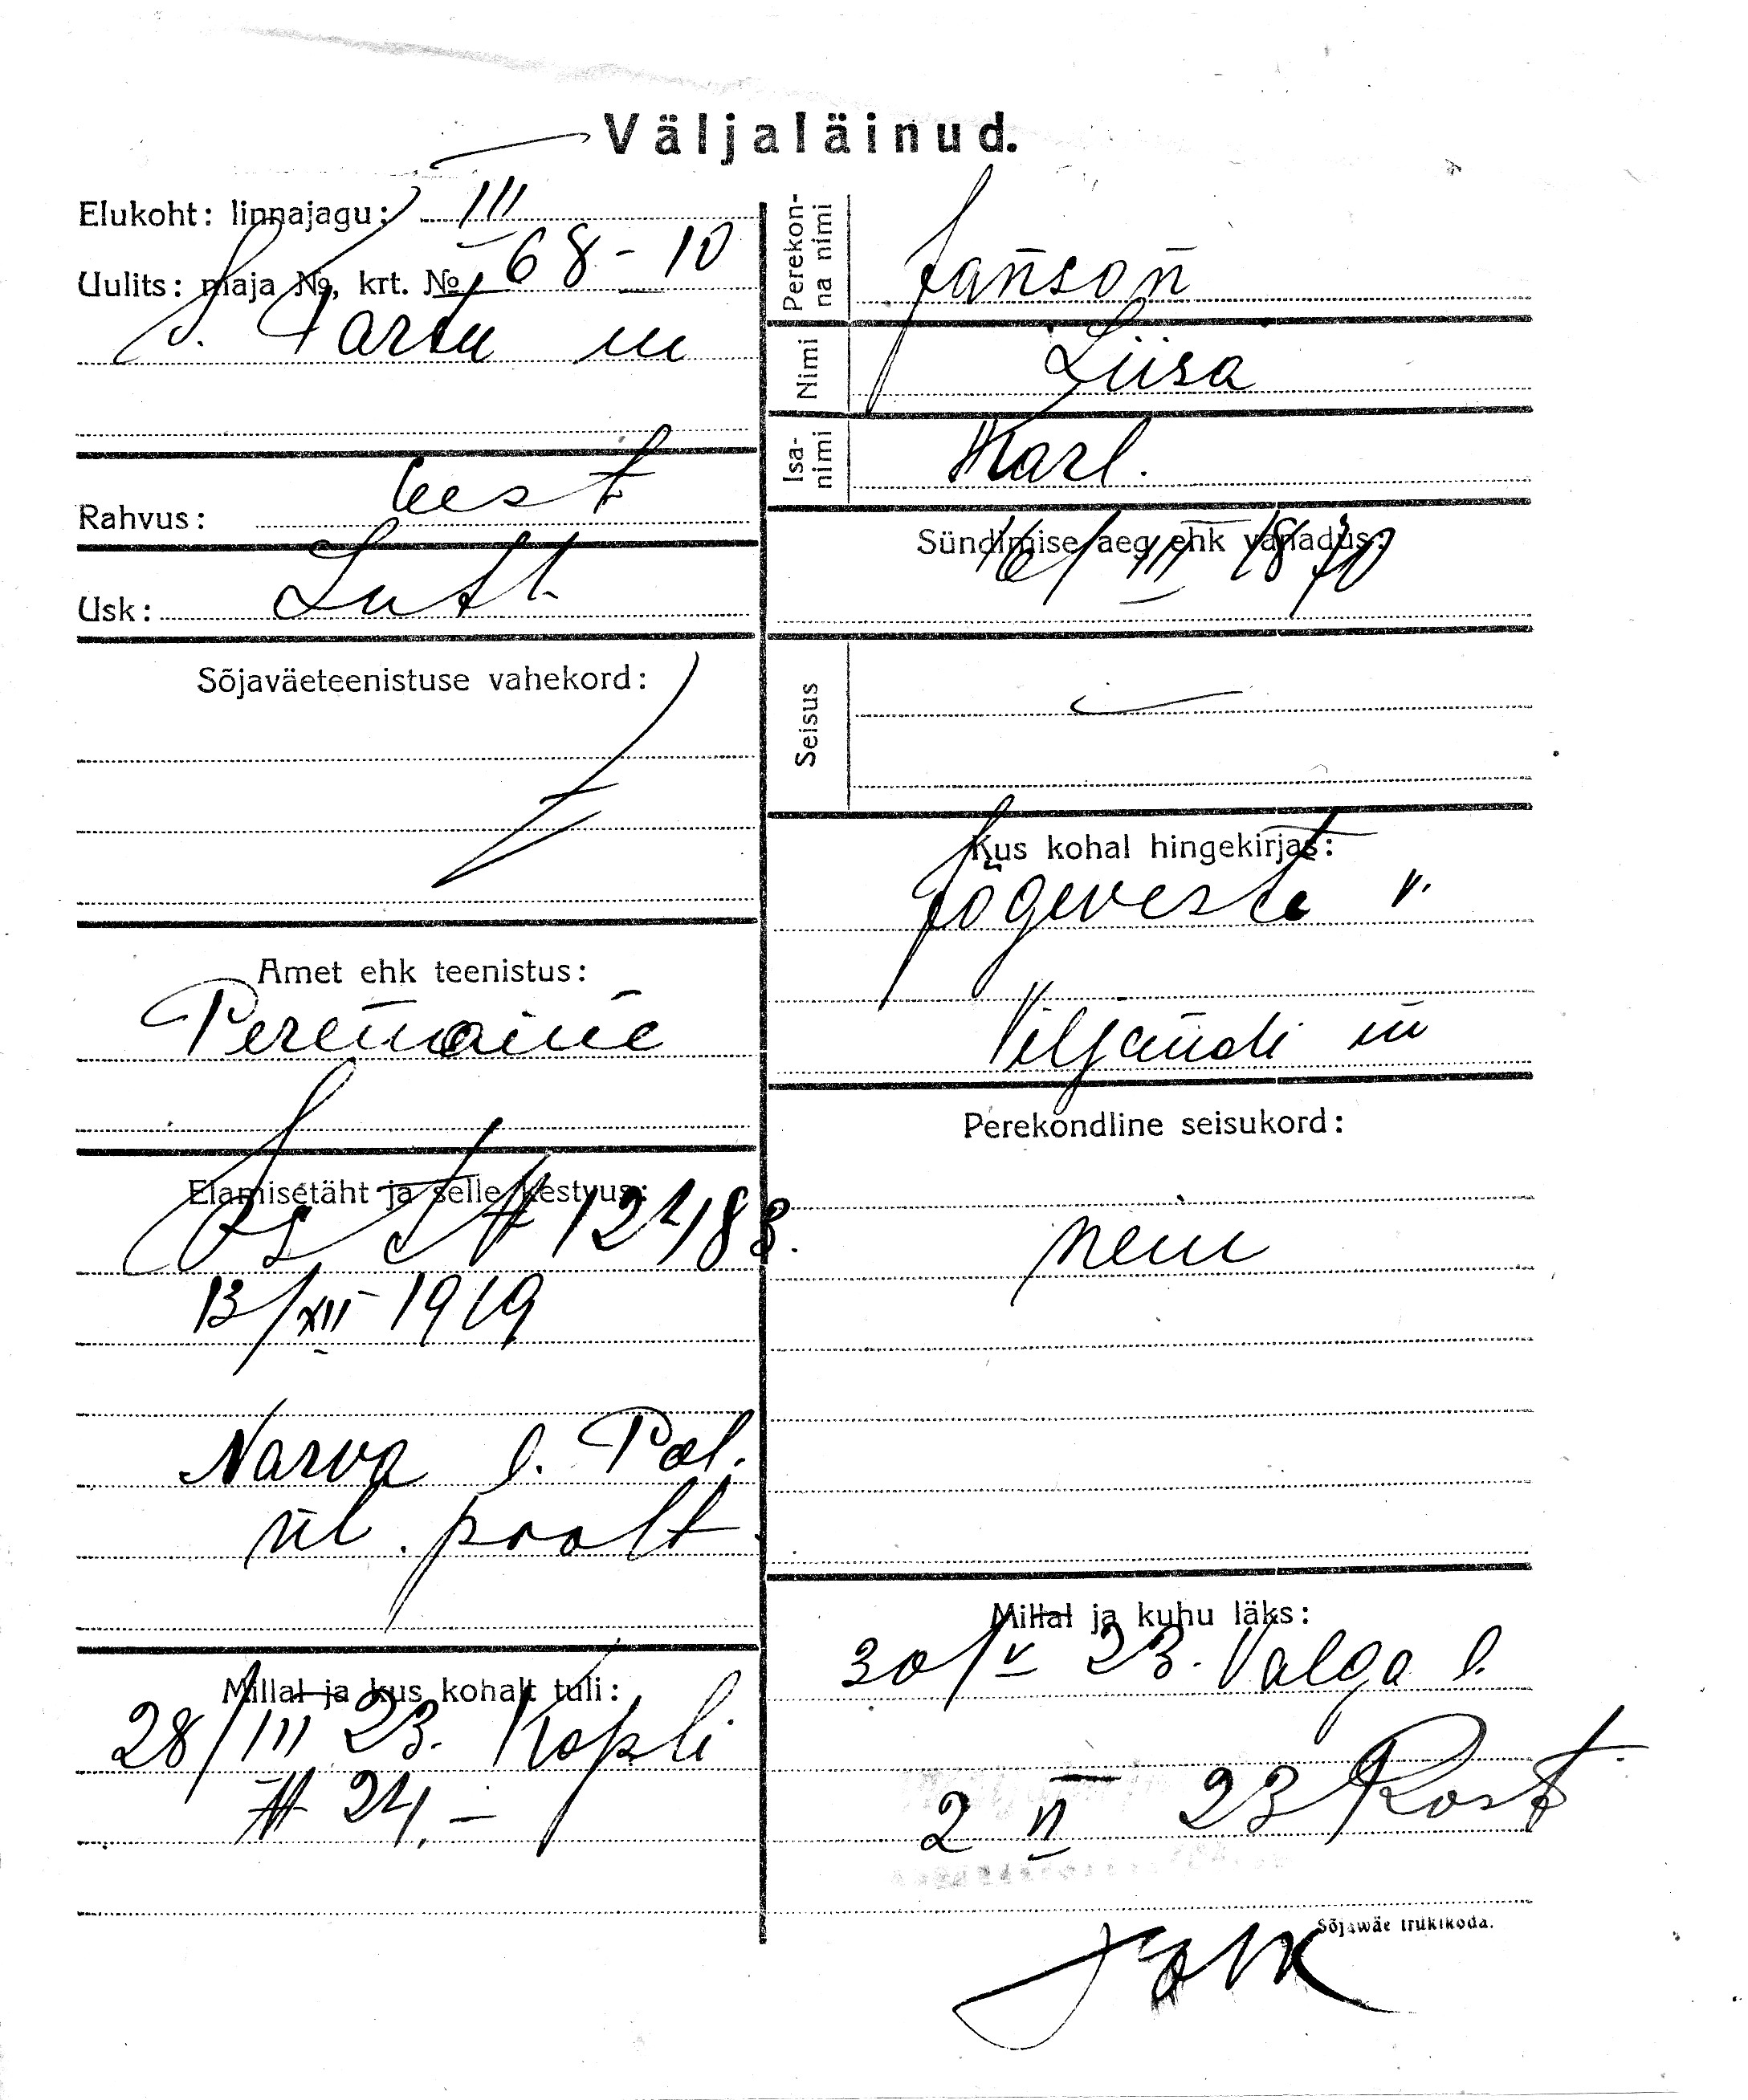 Väljaläinud.
Elukoht: linnajagu: III
Uulits: maja №, krt. № 68 - 10
S. Tartu m
Rahvus: eest
Usk: Luth
Sõjaväeteenistuse vahekord:
Amet ehk teenistus:
Perenaine
Elamisetäht ja selle kestvus:
№ 12483.
13/XII 1919
Narva l. Pol.
ül. poolt
Millal ja kus kohalt tuli:
28/III 23. Kopli
№ 24. -
Perekonna nimi
Janson
Nimi
Liisa
Isanimi
Karl.
Sündimise aeg ehk vanadus:
16/III 1870
Seisus
Kus kohal hingekirjas:
Jõgeveste v.
Viljandi m
Perekondline seisukord:
Millal ja kuhu läks:
30/V 23. Valga l.
2 VI 23 Post
Sõjawäe trükikoda.